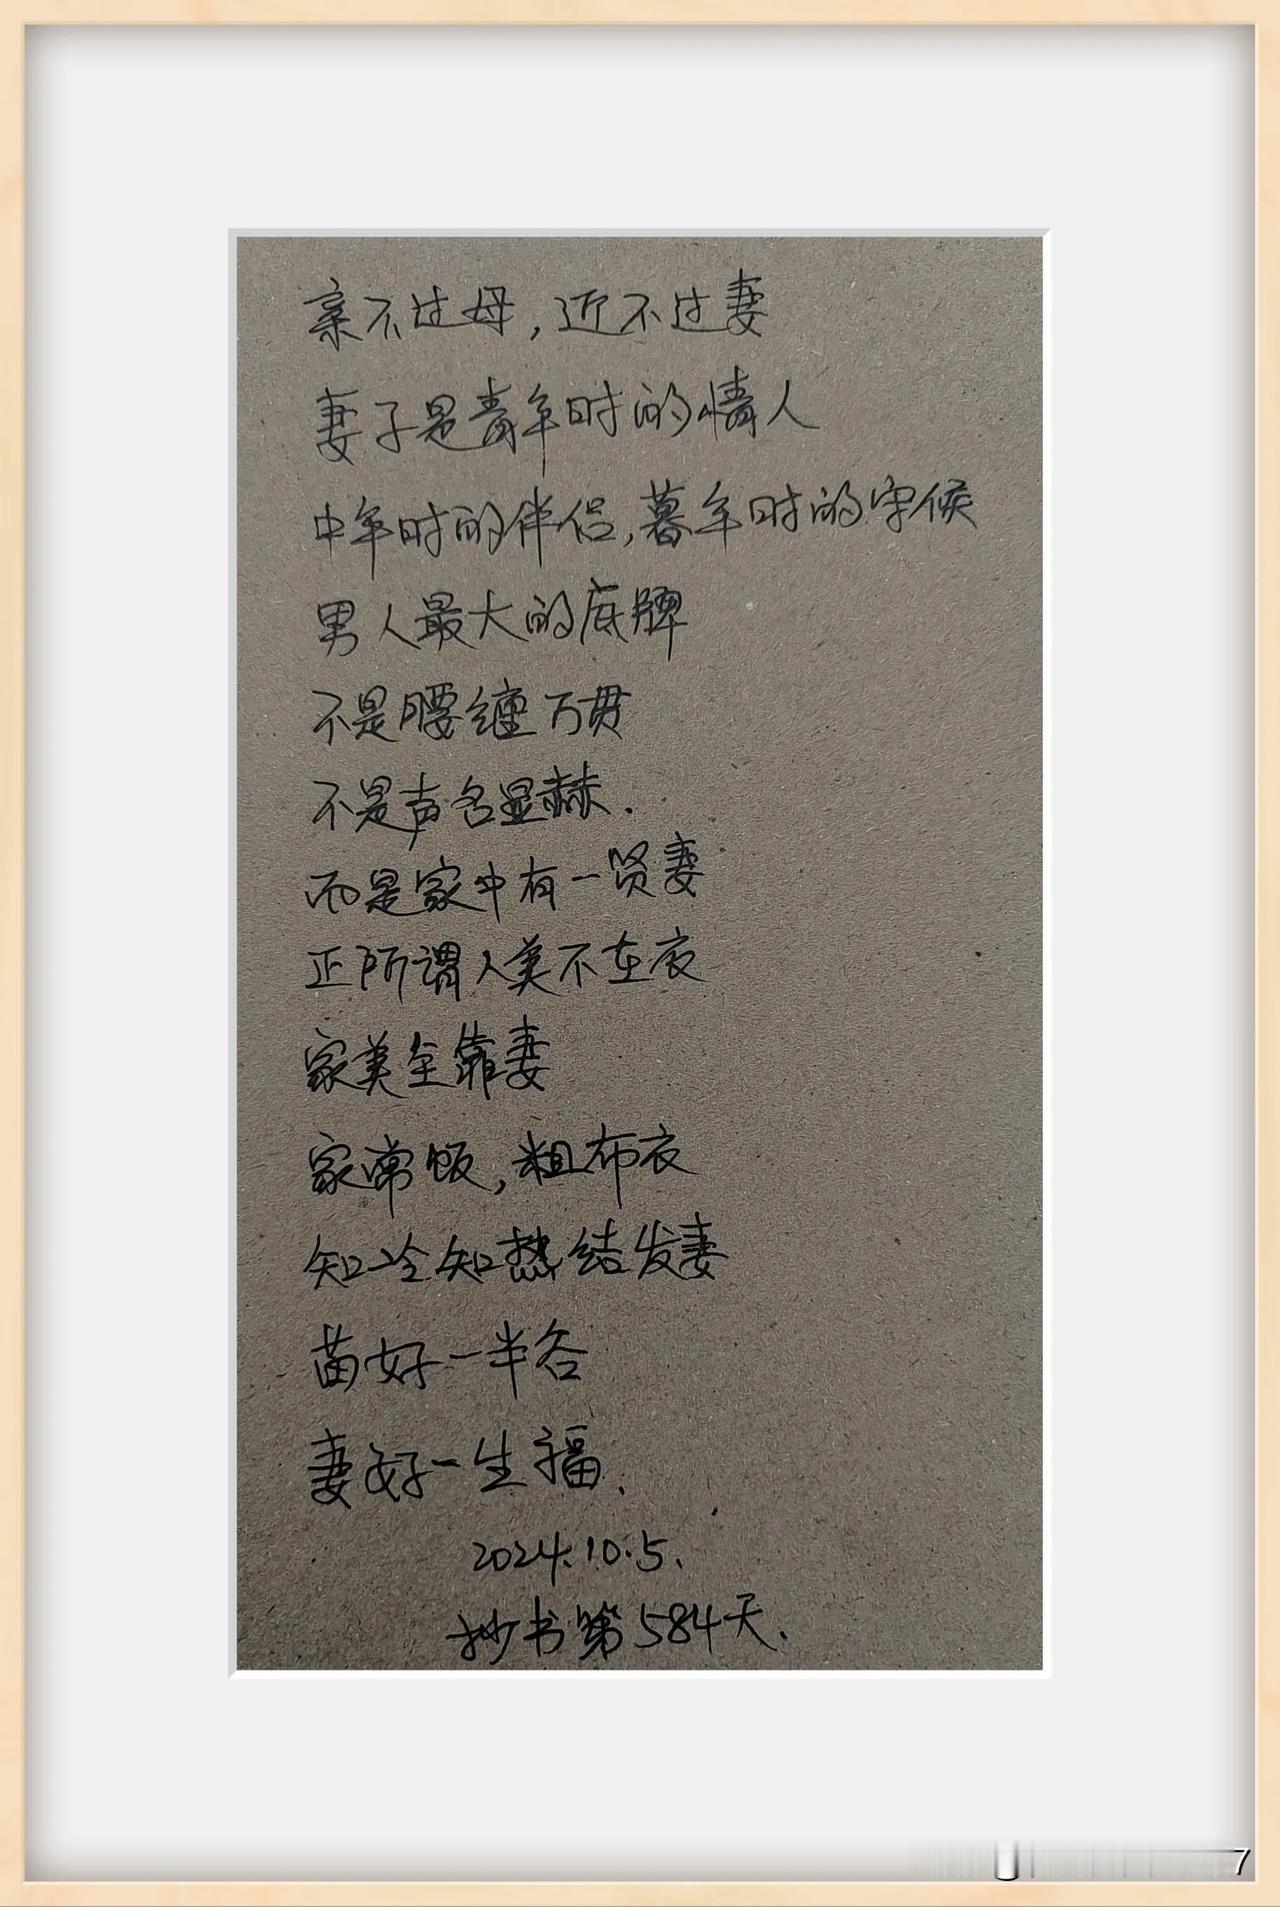 亲不过母，近不过妻
妻子是青年时的情人
中年时的伴侣，暮年时的守候
男人最大的底牌
不是腰缠万贯
不是声名显赫.
而是家中有一贤妻
正所谓人美不在衣
家美全靠妻
家常饭，粗布衣
知冷知热结发妻
苗好一半谷
妻好一生福.
2024.10.5.
抄书第584天.
7